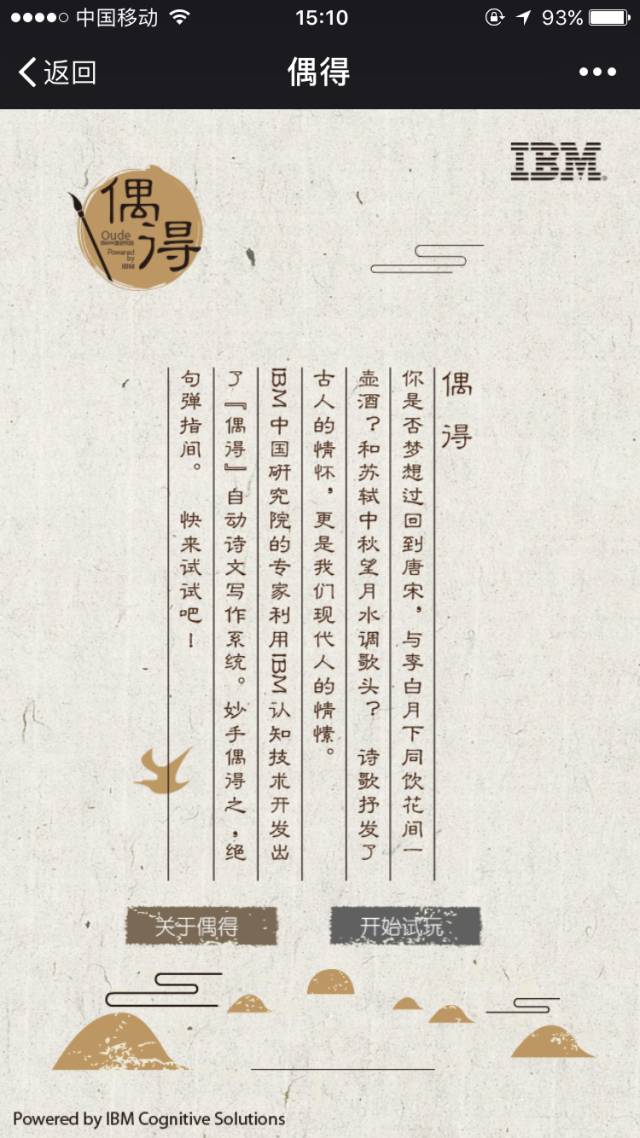 中国移动
15:10
93%
返回
偶得
IBM
偶得
Oude
Powered
by
IBM
偶得
你是否梦想过回到唐宋，与李白月下同饮花间一
壶酒？和苏轼中秋望月水调歌头？ 诗歌抒发了
古人的情怀，更是我们现代人的情愫。
IBM 中国研究院的专家利用IBM 认知技术开发出
了『偶得』自动诗文写作系统。妙手偶得之，绝
句弹指间。 快来试试吧！
关于偶得
开始试玩
Powered by IBM Cognitive Solutions